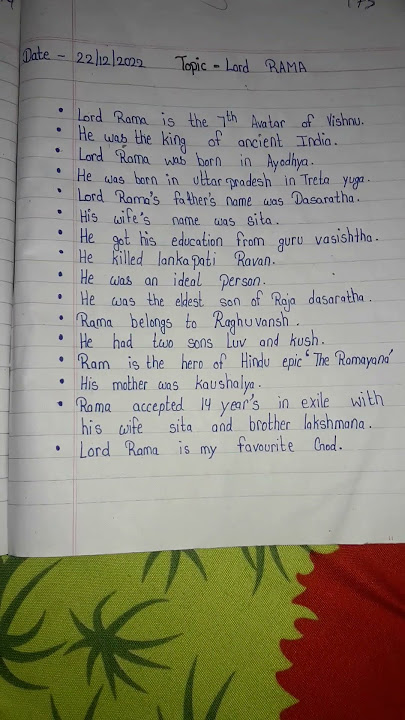 173
Date - 22/12/2022 Topic - Lord RAMA
• Lord Rama is the 7th Avatar of Vishnu.
• He was the king of ancient India.
• Lord Rama was born in Ayodhya.
• He was born in uttar pradesh in Treta yuga.
• Lord Rama's father's name was Dasaratha.
• His wife's name was sita.
• He got his education from guru vasishtha.
• He killed lankapati Ravan.
• He was an ideal person.
• He was the eldest son of Raja dasaratha.
• Rama belongs to Raghuvansh.
• He had two sons Luv and kush.
• Ram is the hero of Hindu epic 'The Ramayana'
• His mother was kaushalya.
• Rama accepted 14 year's in exile with
his wife sita and brother lakshmana.
• Lord Rama is my favourite God.